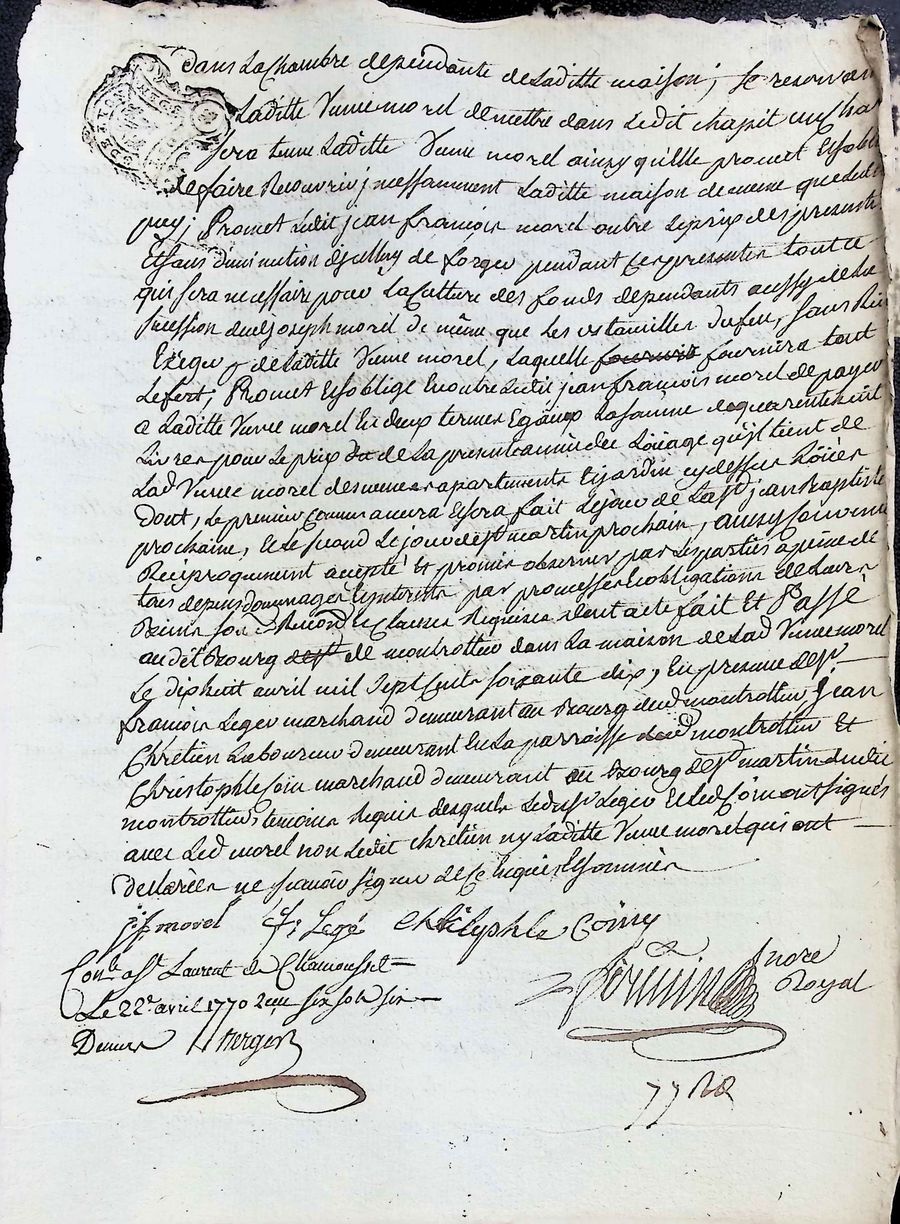 dans La Chambre dependante de Laditte maison; se reservan
Laditte Vuve morel de mettre dans Ledit chapit un cha
sera tenue Laditte Vuve morel ainsy qu'elle promet Et soblig
de faire Recouvrir jncessamment Laditte maison de meme que Ledit
puy; Promet Ledit jean francois morel outre Le prix des presente
Et sans diminution djcelluy de forger pendant presentes tout ce
qui sera necessaire pour La Culture des fonds dependants aussy de La
Sucession dud joseph morel de même que Les ustancilles du feu, sans Rien
Exiger de Laditte Vuve morel, Laquelle fournira fournira tout
Le fert, Promet Et soblige En outre Ledit jean francois morel de payer
a Laditte Vuve morel En deux termes Egaux La somme de quarente huit
Livres pour Le prix de La presente année du Loüage qu'jl tient de
Lad Vuve morel des memes apartements Et jardin cy dessus Loüés
dont, Le premier commancera Et sera fait Le jour de La st jean Baptiste
prochaine, Et Le second Le jour de st martin prochain, ainsy Convenu
Réciproquement acepté Et promis observer par Les parties a peine de
tous depens dommages Et interets par promesses Et obligations de Leurs
Biens Et Clauses Requises dont acte fait Et Passé
audit Bourg de st de montrottier dans La maison de Lad Vuve morel
Le dixhuit avril mil sept cents soixante dix, En presence de sr
francois Leger marchand demeurant au Bourg dud montrottier jean
Chrétien Laboureur demeurant En La parroisse dud montrottier Et
Christophle Coin marchand demeurant au Bourg de st martin dudit
montrottier, temoins Requis desquels Led sr Leger Et Led Coin ont signés
avec Led morel non Ledit chrétien ny Laditte Vuve morel qui ont
declarées ne scavoir signer de ce Enquis Et sommés
j: f: morel f: Legé christophle Coiny
Conle a St Laurent de Chamousset
Le 22e avril 1770 Reçu six sols six
Deniers Berger
Nore
Royal